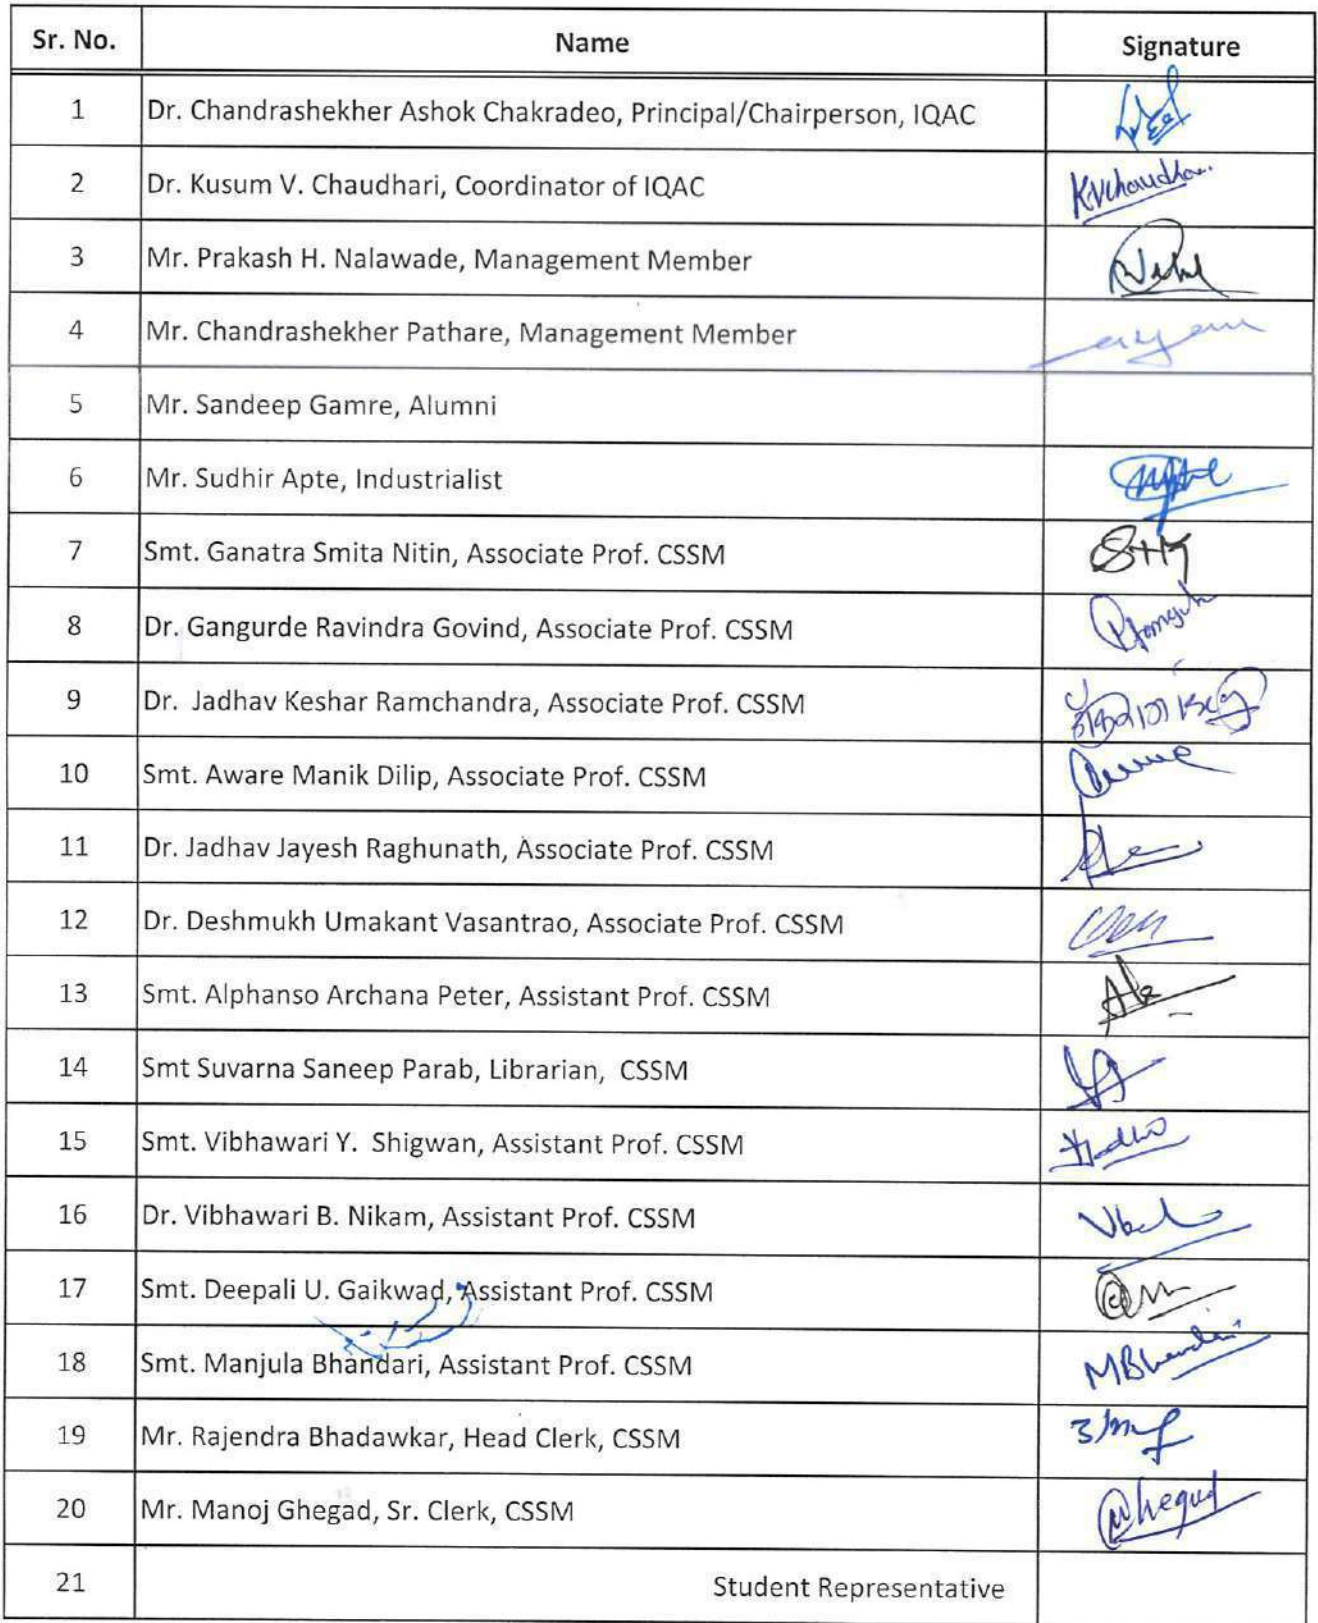 Sr. No. Name Signature
1 Dr. Chandrashekher Ashok Chakradeo, Principal/Chairperson, IQAC
2 Dr. Kusum V. Chaudhari, Coordinator of IQAC KVChaudhari
3 Mr. Prakash H. Nalawade, Management Member
4 Mr. Chandrashekher Pathare, Management Member
5 Mr. Sandeep Gamre, Alumni
6 Mr. Sudhir Apte, Industrialist
7 Smt. Ganatra Smita Nitin, Associate Prof. CSSM
8 Dr. Gangurde Ravindra Govind, Associate Prof. CSSM
9 Dr. Jadhav Keshar Ramchandra, Associate Prof. CSSM
10 Smt. Aware Manik Dilip, Associate Prof. CSSM
11 Dr. Jadhav Jayesh Raghunath, Associate Prof. CSSM
12 Dr. Deshmukh Umakant Vasantrao, Associate Prof. CSSM
13 Smt. Alphanso Archana Peter, Assistant Prof. CSSM
14 Smt Suvarna Saneep Parab, Librarian, CSSM
15 Smt. Vibhawari Y. Shigwan, Assistant Prof. CSSM
16 Dr. Vibhawari B. Nikam, Assistant Prof. CSSM
17 Smt. Deepali U. Gaikwad, Assistant Prof. CSSM
18 Smt. Manjula Bhandari, Assistant Prof. CSSM MBhandari
19 Mr. Rajendra Bhadawkar, Head Clerk, CSSM
20 Mr. Manoj Ghegad, Sr. Clerk, CSSM
21 Student Representative